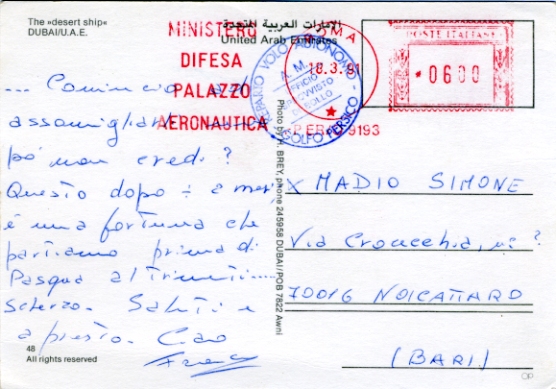 The »desert ship«
DUBAI/U.A.E.
الإمارات العربية المتحدة
United Arab Emirates
MINISTERO
DIFESA
PALAZZO
AERONAUTICA
ROMA
18.3.91
POSTE ITALIANE
*0600
REPARTO VOLO AUTONOMO
A.M.
BOLLO
GOLFO PERSICO
9193
... Comincio ad
assomigliar
po' non credi?
Questo dopo i 2 mesi
è una fortuna che
partiamo prima di
Pasqua altrimenti.....
scherzo. Saluti e
a presto. Ciao
Photo by H. BREY, phone 245958 DUBAI/POB 7822 Awni
X MADIO SIMONE
Via Crocecchia, n° ?
70016 NOICATTARO
(BARI)
48
All rights reserved